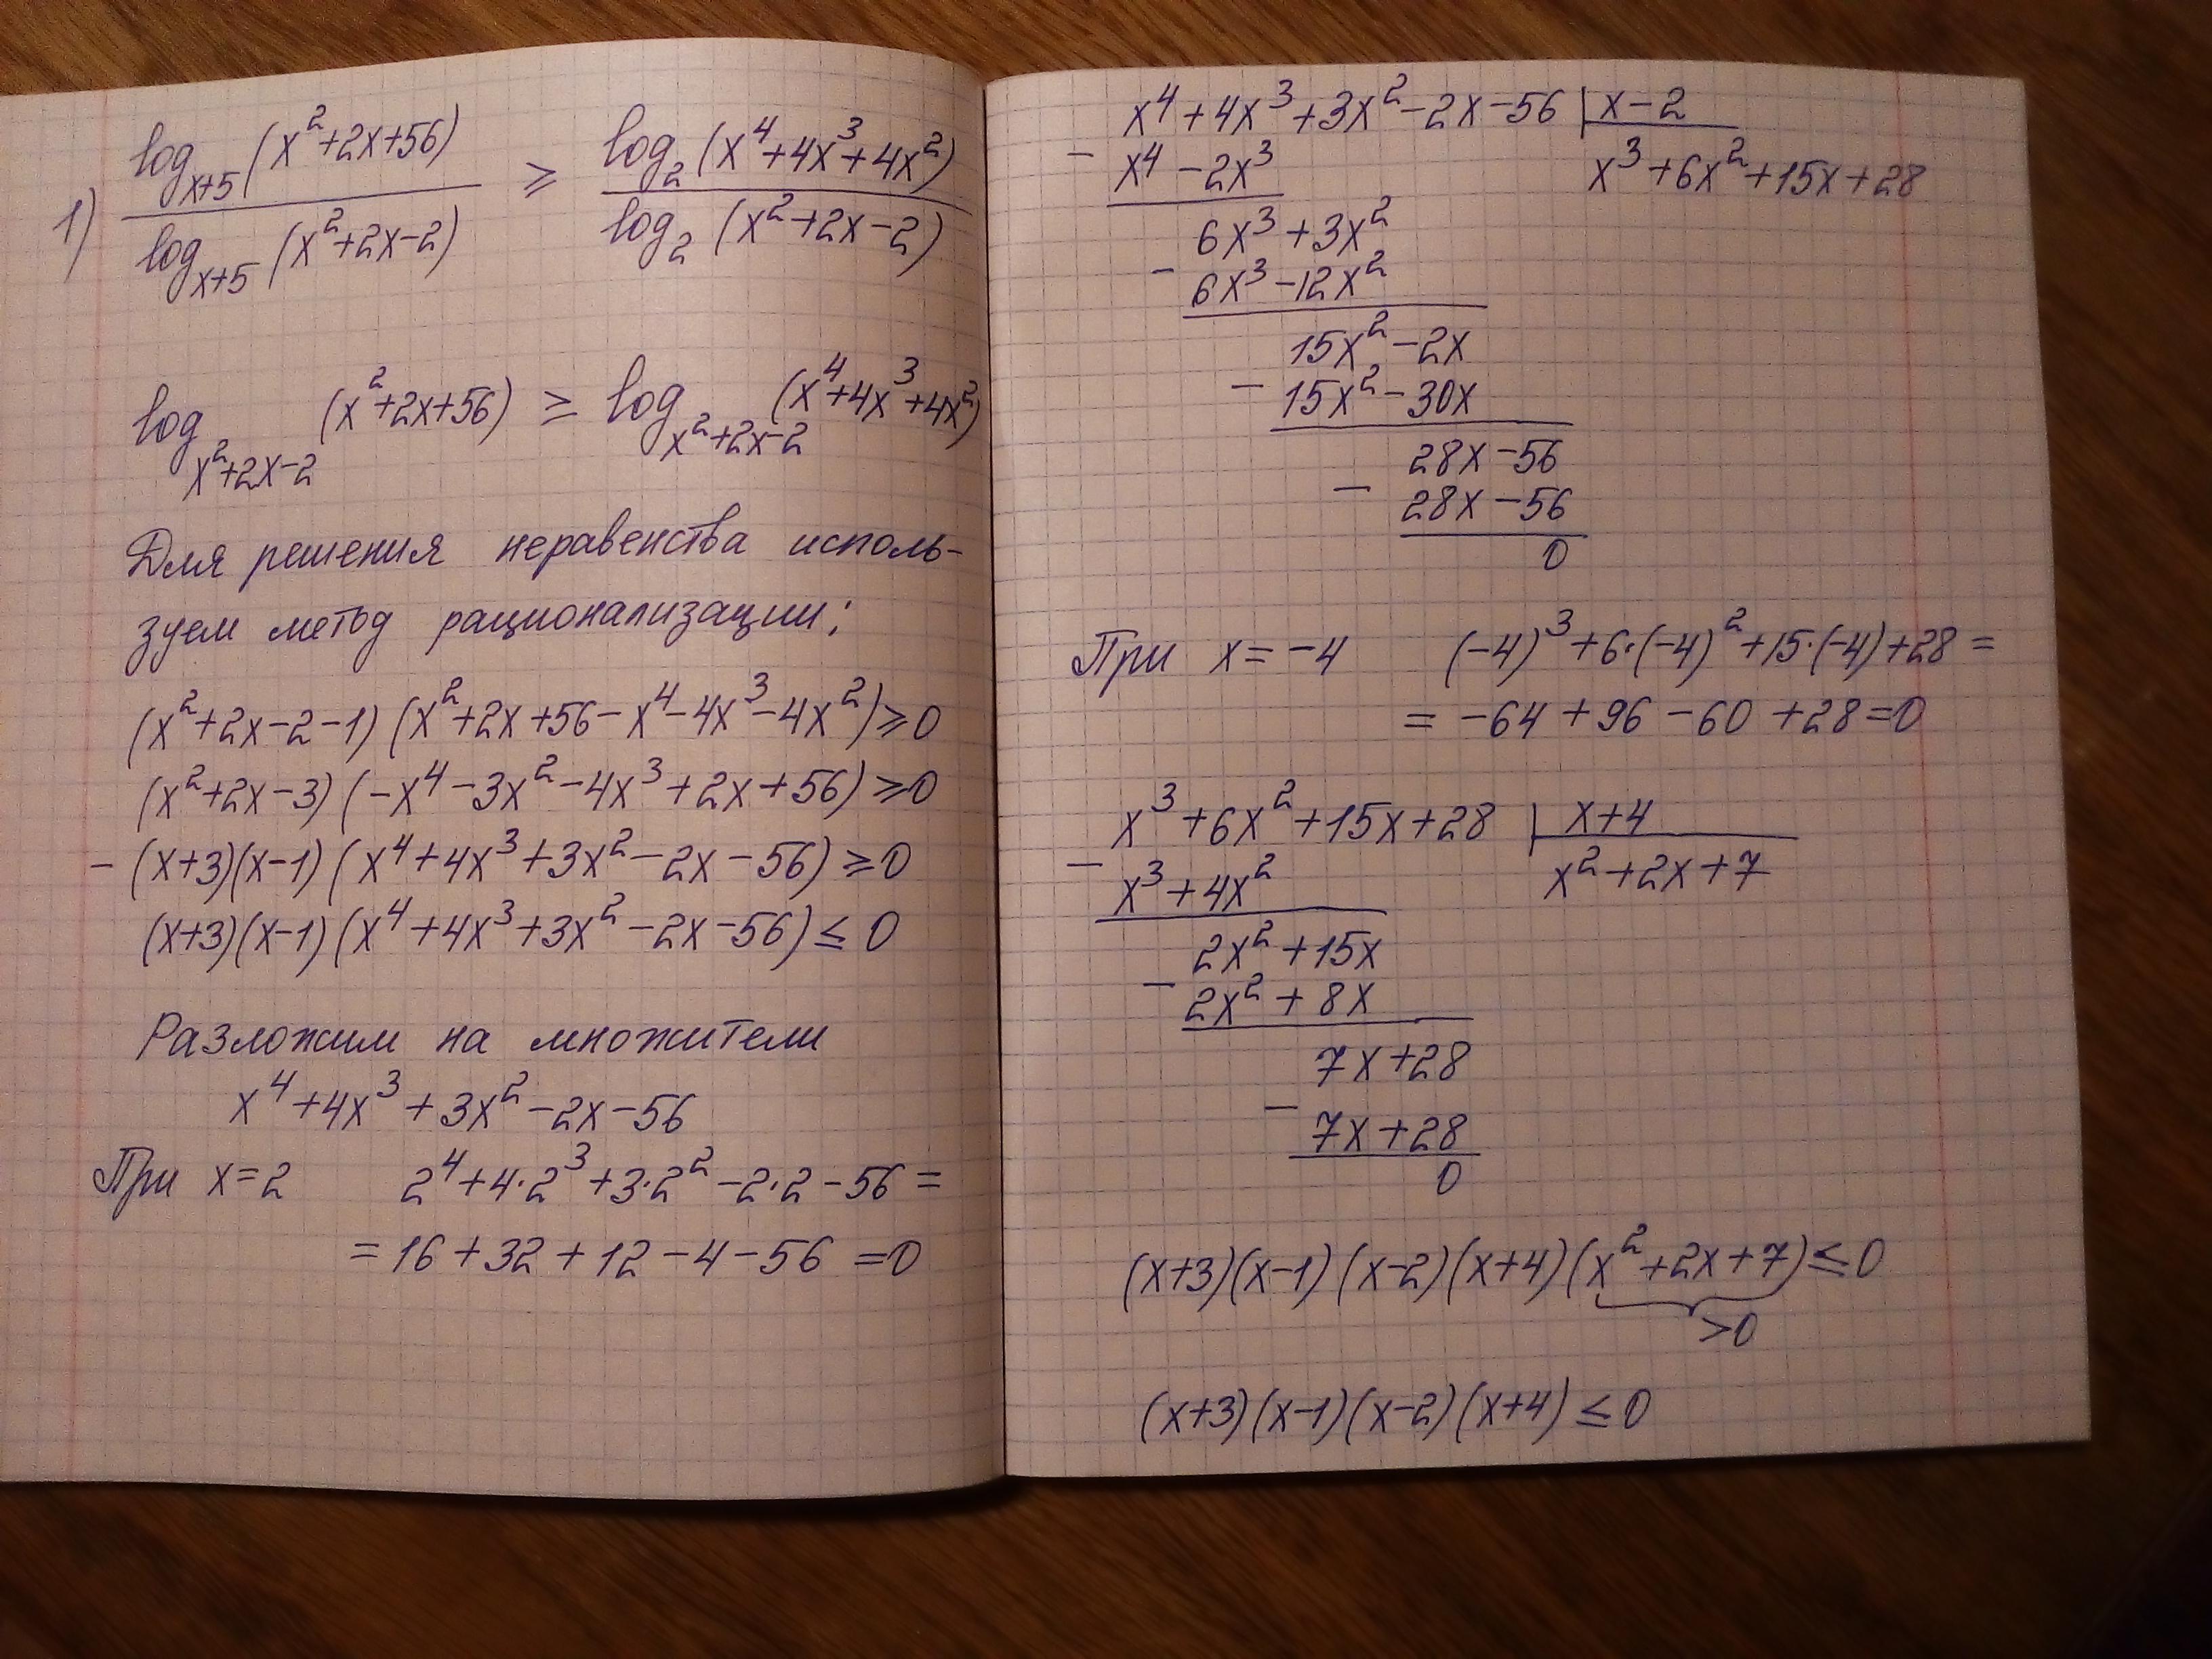 1) log_{x+5}(x²+2x+56) / log_{x+5}(x²+2x-2) ≥ log₂(x⁴+4x³+4x²) / log₂(x²+2x-2)
log_{x²+2x-2}(x²+2x+56) ≥ log_{x²+2x-2}(x⁴+4x³+4x²)
Для решения неравенства исполь-
зуем метод рационализации:
(x²+2x-2-1)(x²+2x+56-x⁴-4x³-4x²)≥0
(x²+2x-3)(-x⁴-3x²-4x³+2x+56)≥0
-(x+3)(x-1)(x⁴+4x³+3x²-2x-56)≥0
(x+3)(x-1)(x⁴+4x³+3x²-2x-56)≤0
Разложим на множители
x⁴+4x³+3x²-2x-56
При x=2 2⁴+4·2³+3·2²-2·2-56=
=16+32+12-4-56=0
x⁴+4x³+3x²-2x-56 | x-2
- x⁴-2x³ x³+6x²+15x+28
6x³+3x²
- 6x³-12x²
15x²-2x
- 15x²-30x
28x-56
- 28x-56
0
При x=-4 (-4)³+6·(-4)²+15·(-4)+28=
=-64+96-60+28=0
x³+6x²+15x+28 | x+4
- x³+4x² x²+2x+7
2x²+15x
- 2x²+8x
7x+28
- 7x+28
0
(x+3)(x-1)(x-2)(x+4)(x²+2x+7)≤0
>0
(x+3)(x-1)(x-2)(x+4)≤0